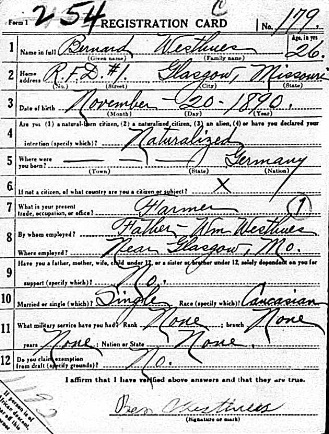 Form 1 254 REGISTRATION CARD C No. 179
1 Name in full Bernard Westhues Age, in yrs 26.
(Given name) (Family name)
2 Home address R.F.D. #1. Glasgow, Missouri
(No.) (Street) (City) (State)
3 Date of birth November - 20 - 1890.
(Month) (Day) (Year)
4 Are you (1) a natural-born citizen, (2) a naturalized citizen, (3) an alien, (4) or have you declared your
intention (specify which)? Naturalized
5 Where were you born? Germany
(Town) (State) (Nation)
6 If not a citizen, of what country are you a citizen or subject? X
7 What is your present trade, occupation, or office? Farmer 1
8 By whom employed? Father - Wm Westhues
Where employed? Near Glasgow, Mo.
9 Have you a father, mother, wife, child under 12, or a sister or brother under 12, solely dependent on you for
support (specify which)? No.
10 Married or single (which)? Single Race (specify which)? Caucasian
11 What military service have you had? Rank None ; branch None
years None Nation or State None.
12 Do you claim exemption from draft (specify grounds)? No.
I affirm that I have verified above answers and that they are true.
Ben Westhues
(Signature or mark)
If person is of
African descent